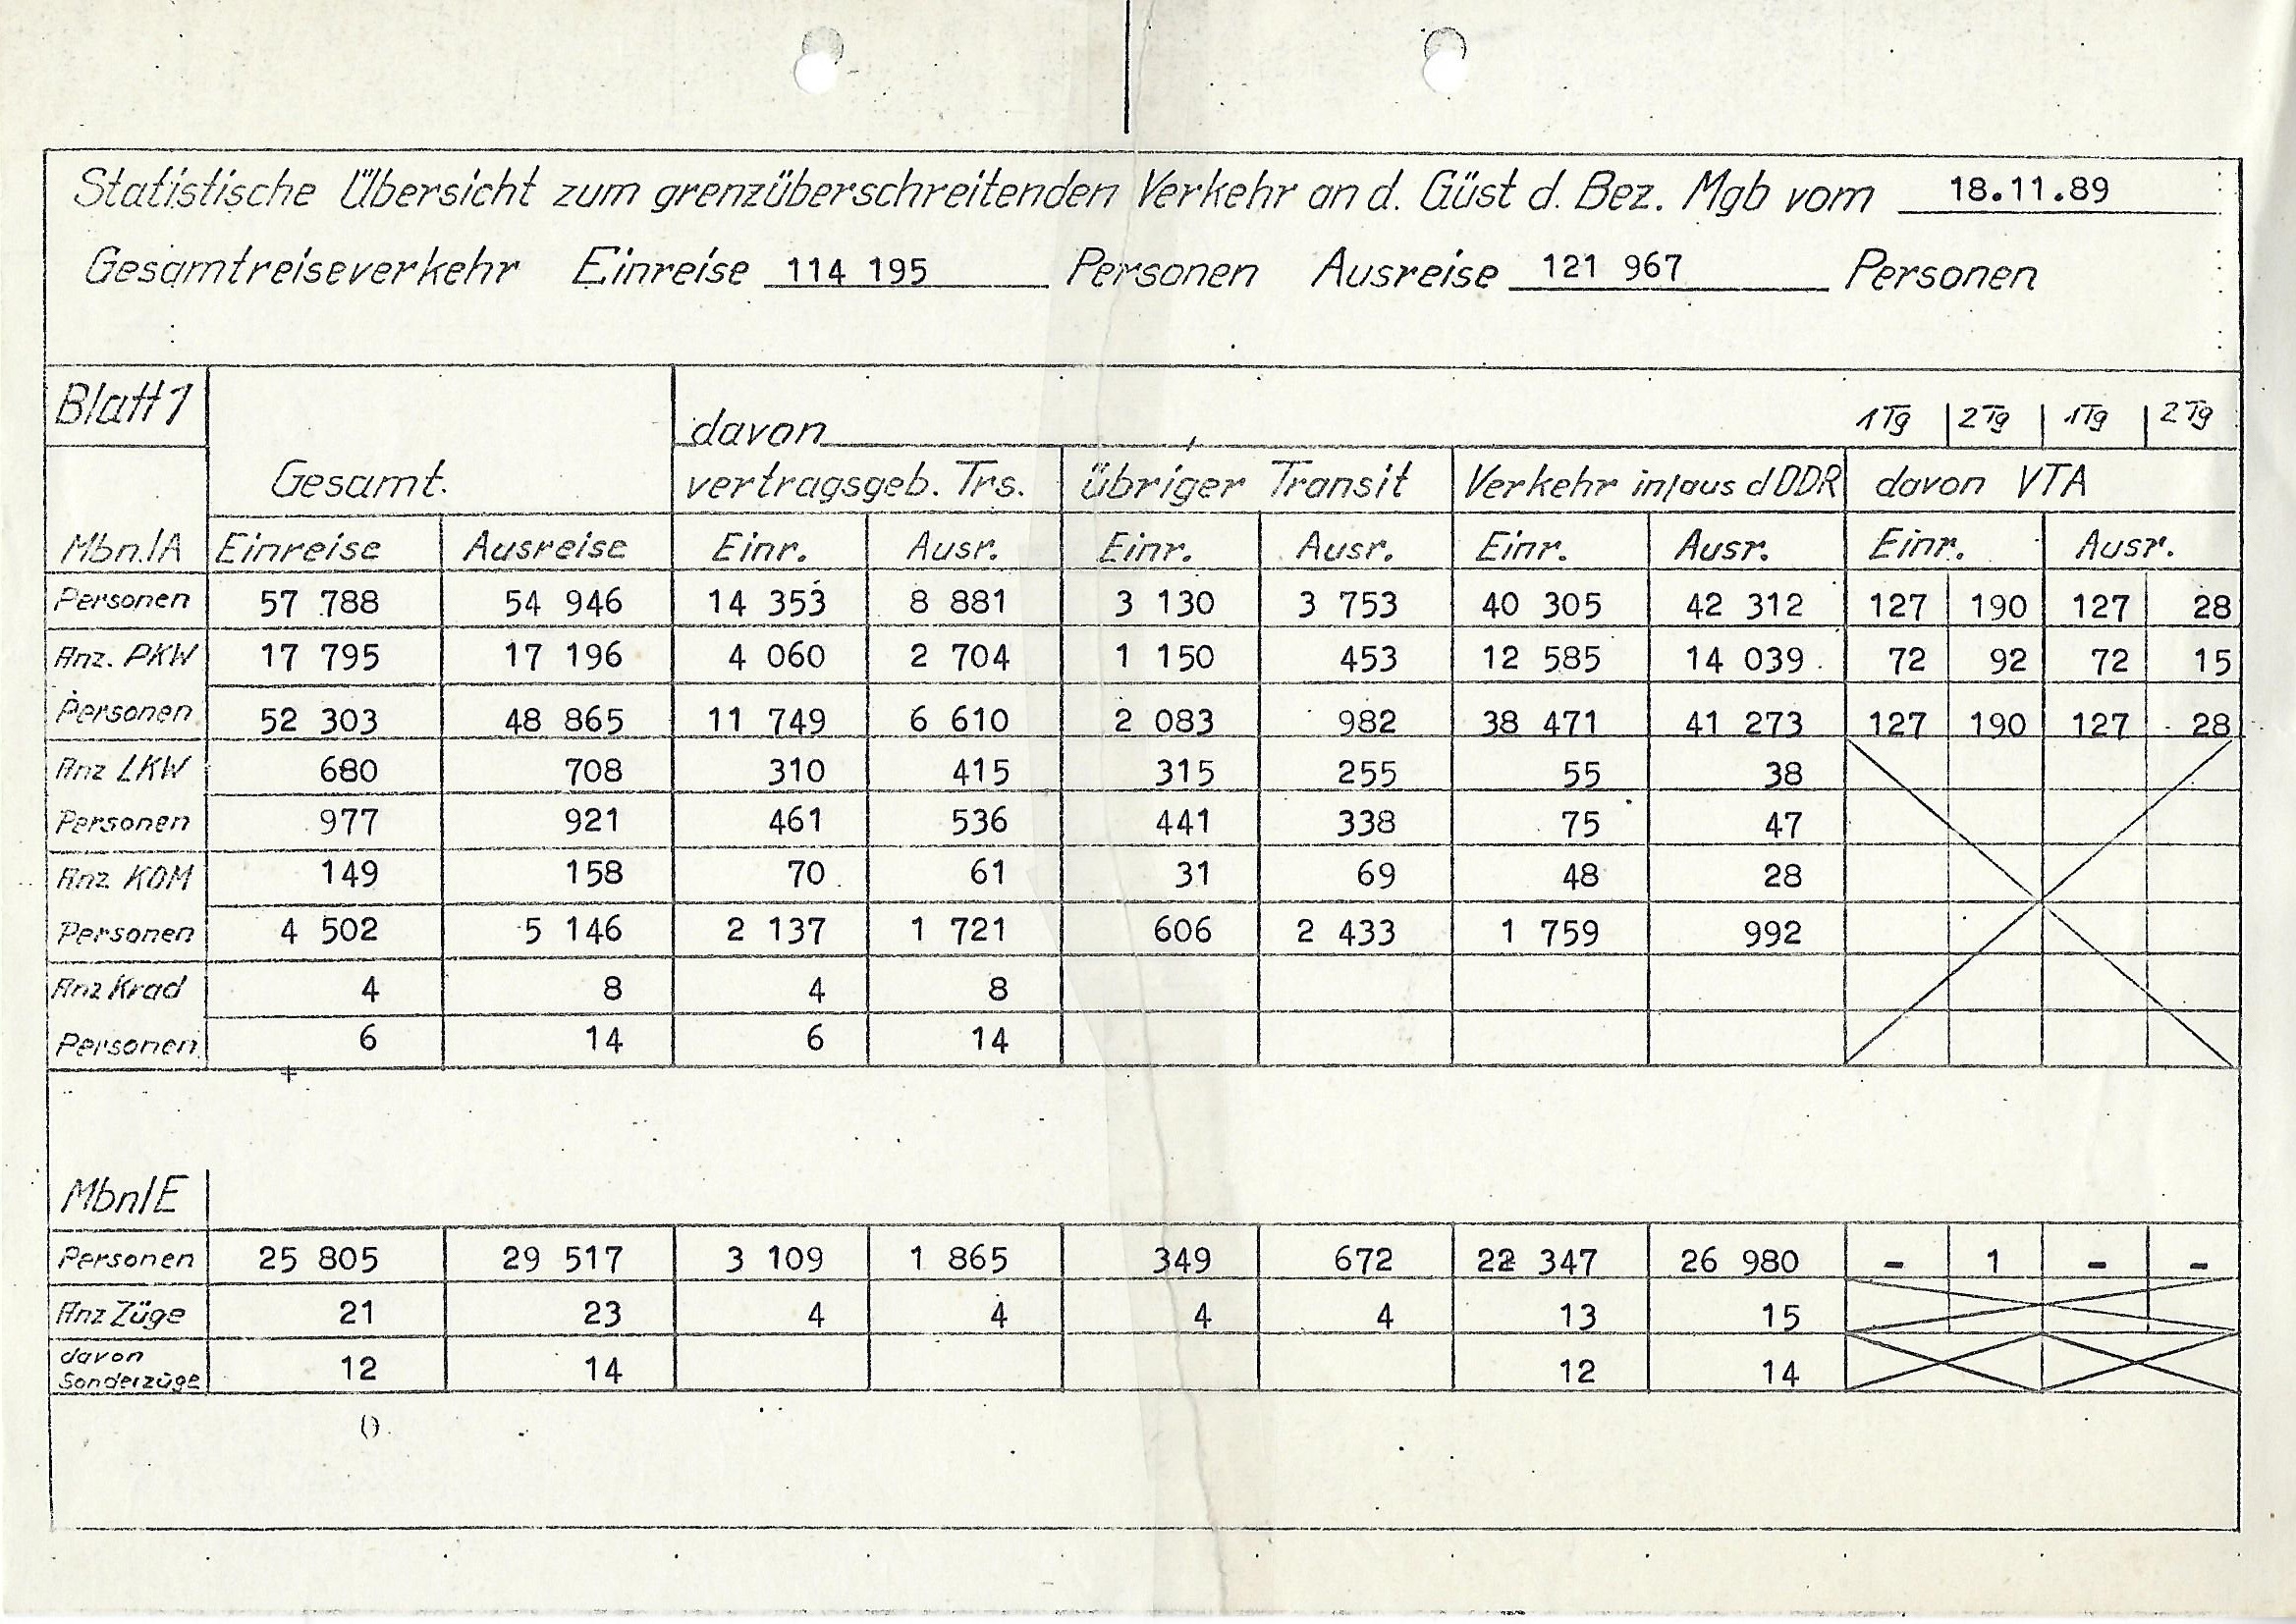 Statistische Übersicht zum grenzüberschreitenden Verkehr an d. Güst d. Bez. Mgb vom 18.11.89
Gesamtreiseverkehr Einreise 114 195 Personen Ausreise 121 967 Personen
Blatt 1 davon 1Tg 2Tg 1Tg 2Tg
Gesamt. vertragsgeb. Trs. übriger Transit Verkehr in/aus d DDR davon VTA
Mbn./A Einreise Ausreise Einr. Ausr. Einr. Ausr. Einr. Ausr. Einr. Ausr.
Personen 57 788 54 946 14 353 8 881 3 130 3 753 40 305 42 312 127 190 127 28
Anz. PKW 17 795 17 196 4 060 2 704 1 150 453 12 585 14 039 72 92 72 15
Personen 52 303 48 865 11 749 6 610 2 083 982 38 471 41 273 127 190 127 28
Anz LKW 680 708 310 415 315 255 55 38
Personen 977 921 461 536 441 338 75 47
Anz KOM 149 158 70 61 31 69 48 28
Personen 4 502 5 146 2 137 1 721 606 2 433 1 759 992
Anz Krad 4 8 4 8
Personen 6 14 6 14
Mbn/E
Personen 25 805 29 517 3 109 1 865 349 672 22 347 26 980 - 1 - -
Anz Züge 21 23 4 4 4 4 13 15
davon
Sonderzüge 12 14 12 14